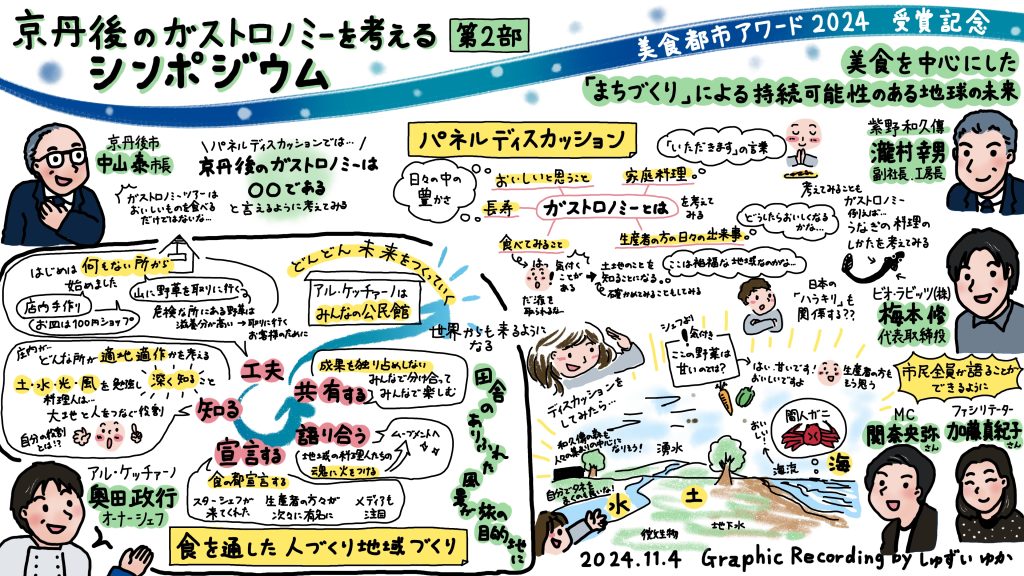 京丹後のガストロノミーを考える
シンポジウム
第2部
美食都市アワード2024 受賞記念
美食を中心にした
「まちづくり」による持続可能性のある地球の未来
京丹後市
中山泰市長
ガストロノミーツアーは
おいしいものを食べる
だけではないな…
\パネルディスカッションでは…/
京丹後のガストロノミーは
○○である
と言えるように考えてみる
パネルディスカッション
日々の中の
豊かさ
おいしいと思うこと
家庭料理
「いただきます」の言葉
長寿
ガストロノミーとは
を考えて
みる
食べてみること
生産者の方の日々の出来事
どうしたらおいしくなる
かな…
は。
気付く
ことが
ある
だ液を
取られるな…
土地のことを
知ることになる。
確かめてみることもしてみる
ここは裕福な地域なのかな…
紫野和久傳
瀧村幸男
副社長.工房長
考えてみることも
ガストロノミー
例えば…
うなぎの料理の
しかたを考えてみる
日本の
「ハラキリ」も
関係する??
ビオ・ラビッツ(株)
梅本修
代表取締役
市民全員が語ることが
できるように
MC
関奈央弥さん
ファシリテーター
加藤真紀子さん
はじめは何もない所から
始めました
店内手作り
お皿は100円ショップ
山に野菜を取りに行く
危険な所にある野菜は
滋養分が高い→取りに行く
お客様のために
どんどん未来をつくっていく
アル・ケッチァーノは
みんなの公民館
世界からも来るように
なる
庄内が
どんな所が適地適作かを考える
土・水・光・風を勉強し 深く知ること
料理人は…
大地と人をつなぐ役割
自分の役割
とは!?
工夫
共有する
知る
語り合う
宣言する
成果も独り占めしない
みんなで分け合って
みんなで楽しむ
ムーブメントへ
地域の料理人たちの
魂に火をつける
食の都宣言する
スターシェフが
来てくれた
生産者の方々が
次々に有名に
メディアも
注目
田舎のありふれた風景が旅の目的地に
アル・ケッチァーノ
奥田政行
オーナーシェフ
食を通した人づくり地域づくり
ディスカッションを
してみたら…
シェフより
気付き
ここの野菜は
甘いのでは?
はい.甘いです!
おいしいですよ
生産者の方も
もう思う
和久傳の森も
人の集まりの中心に
なりもう!
自分で夕本を
湧水
おいしい!
間人ガニ
海流
海
水
土
微生物
地下水
2024.11.4 Graphic Recording by しゅずい ゆか